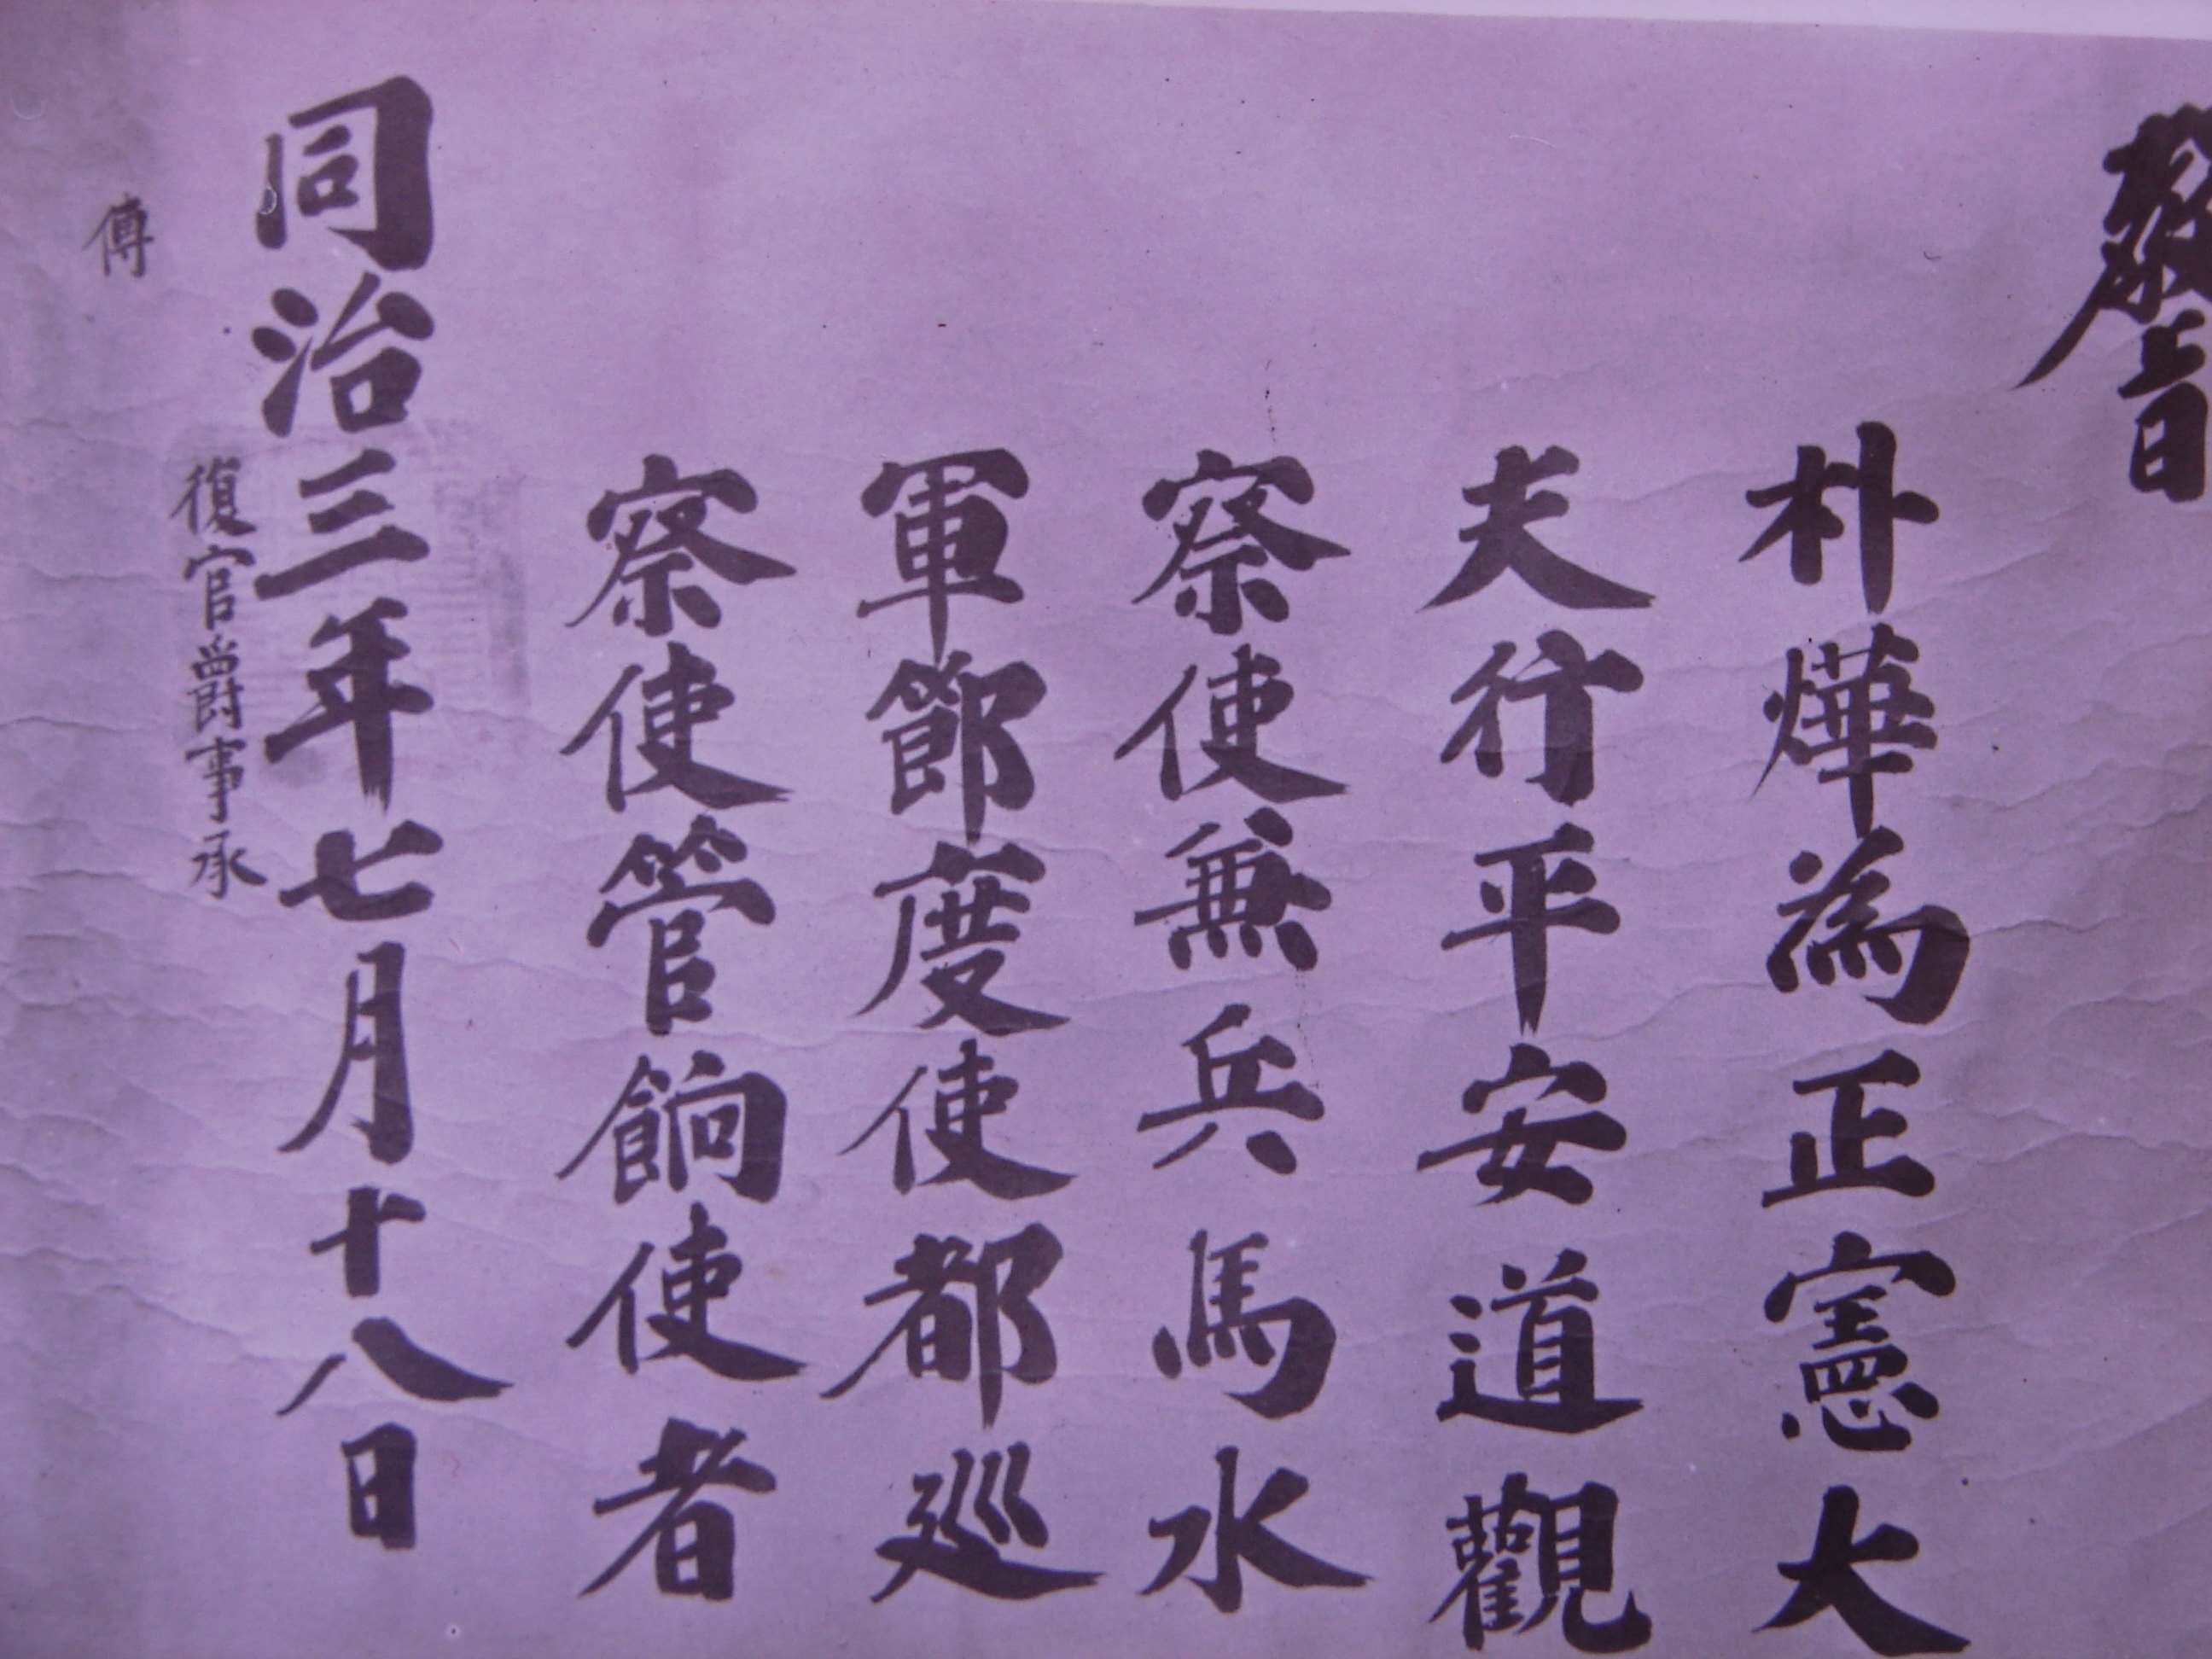 教旨
朴燁為正憲大
夫行平安道觀
察使兼兵馬水
軍節度使都巡
察使管餉使者
同治三年七月十八日
復官爵事承
傳